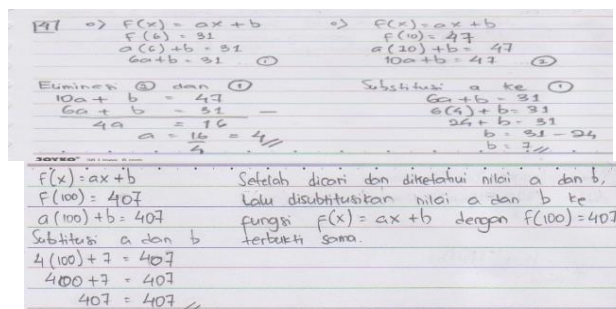 P47 => F(x) = ax + b
F(6) = 31
a(6) + b = 31
6a + b = 31 ①
=> F(x) = ax + b
F(10) = 47
a(10) + b = 47
10a + b = 47 ②
Eliminasi ② dan ①
10a + b = 47
6a + b = 31 —
4a = 16
a = 16/4 = 4 //
Substitusi a ke ①
6a + b = 31
6(4) + b = 31
24 + b = 31
b = 31 - 24
b = 7 //
JOYKO
F(x) = ax + b
F(100) = 407
a(100) + b = 407
Subtitusi a dan b
4(100) + 7 = 407
400 + 7 = 407
407 = 407 //
Setelah dicari dan diketahui nilai a dan b,
lalu disubtitusikan nilai a dan b ke
fungsi F(x) = ax + b dengan F(100) = 407
terbukti sama.